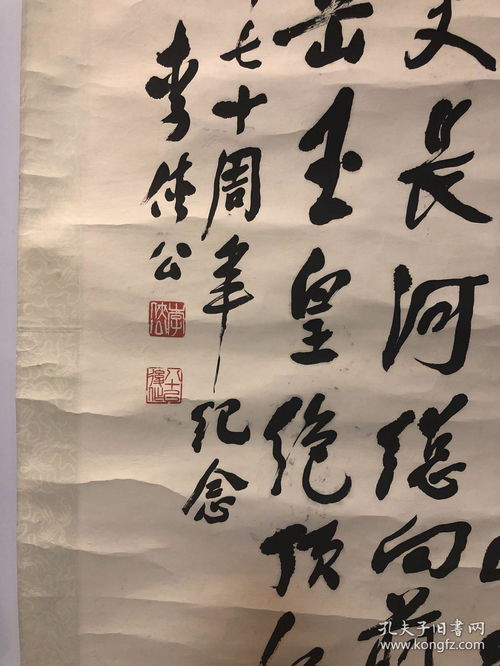 長河總向前
岳玉皇绝顶
七十周年纪念
李侠公
孔夫子旧书网
www.kongfz.com